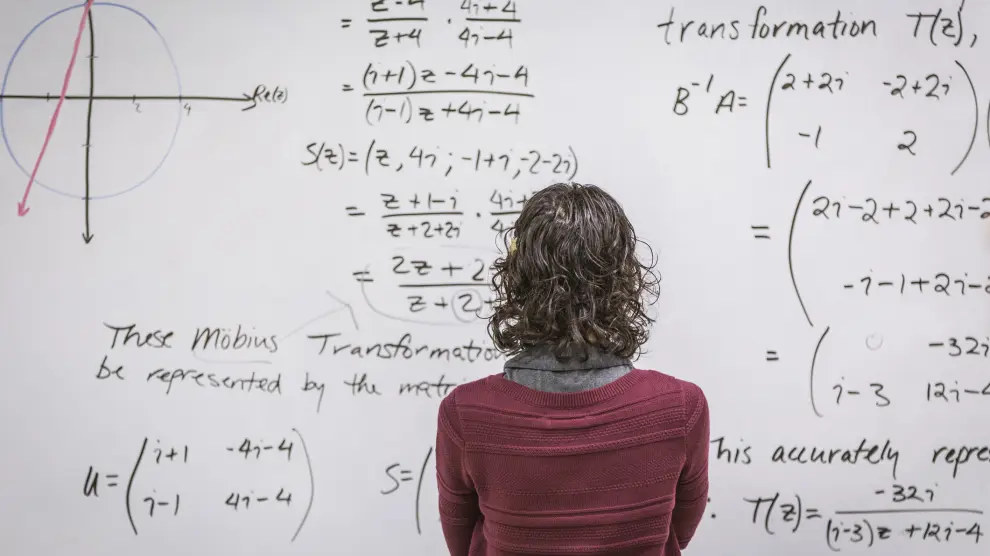 = z-4/z+4 · 4i+4/4i-4
= (i+1)z-4i-4/(i-1)z+4i-4
S(z)=(z, 4i; -1+i, -2-2i)
= z+1-i/z+2+2i · 4i
= 2z+2/z+2
Re(z)
2 4
These Möbius Transformatio
be represented by the matri
U= (i+1 -4i-4
i-1 4i-4)
S= (
transformation T(z),
B⁻¹A= (2+2i -2+2i
-1 2)
= (2i-2+2+2i-2
-i-1+2i-2
= ( -32i
i-3 12i-4
his accurately repre
T(z)= -32i/(i-3)z+12i-4